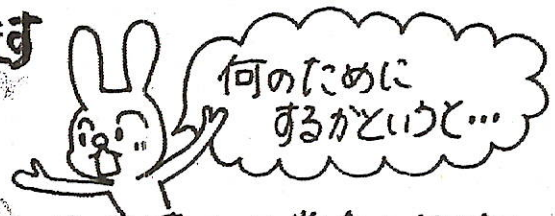 す
何のために
するかというと…